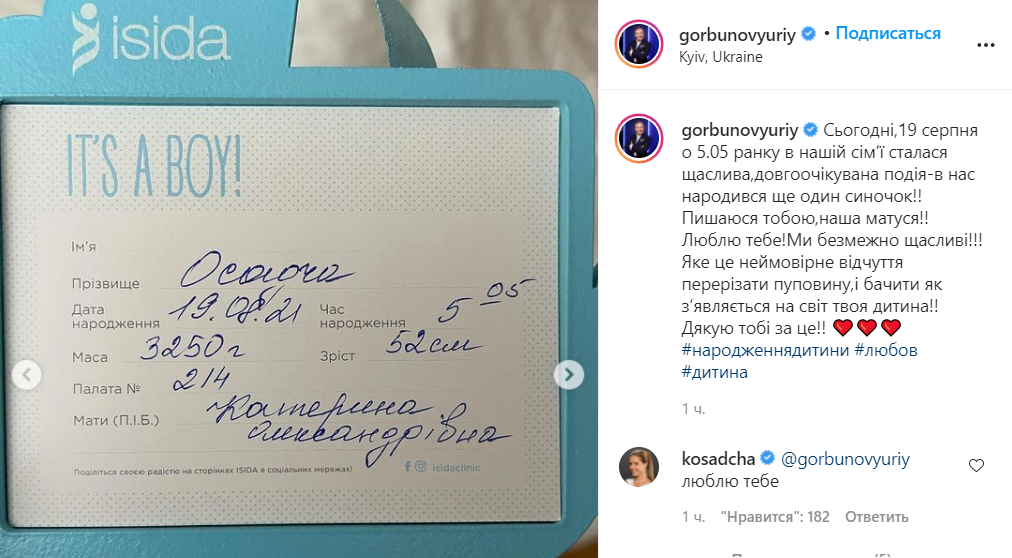 isida
IT'S A BOY!
Ім'я
Прізвище Осадча
Дата народження 19.08.21 Час народження 5 05
Маса 3250 г Зріст 52 см
Палата № 214
Мати (П.І.Б.) Катерина
Олександрівна
Поділіться своєю радістю на сторінках ISIDA в соціальних мережах! isidaclinic
gorbunovyuriy • Подписаться
Kyiv, Ukraine
gorbunovyuriy Сьогодні,19 серпня
о 5.05 ранку в нашій сім‘ї сталася
щаслива,довгоочікувана подія-в нас
народився ще один синочок!!
Пишаюся тобою,наша матуся!!
Люблю тебе!Ми безмежно щасливі!!!
Яке це неймовірне відчуття
перерізати пуповину,і бачити як
з‘являється на світ твоя дитина!!
Дякую тобі за це!! ❤️❤️❤️
#народженнядитини #любов
#дитина
1 ч.
kosadcha @gorbunovyuriy
люблю тебе
1 ч. "Нравится": 182 Ответить